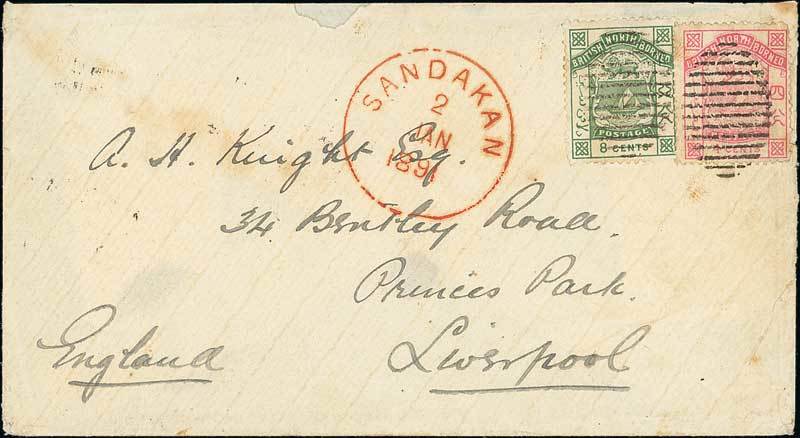 BRITISH NORTH BORNEO
POSTAGE
8 CENTS
NORTH BORNEO
CENTS
SANDAKAN
2
JAN
1891
A. H. Knight Esq.
34 Bentley Road.
Princes Park.
Liverpool
England